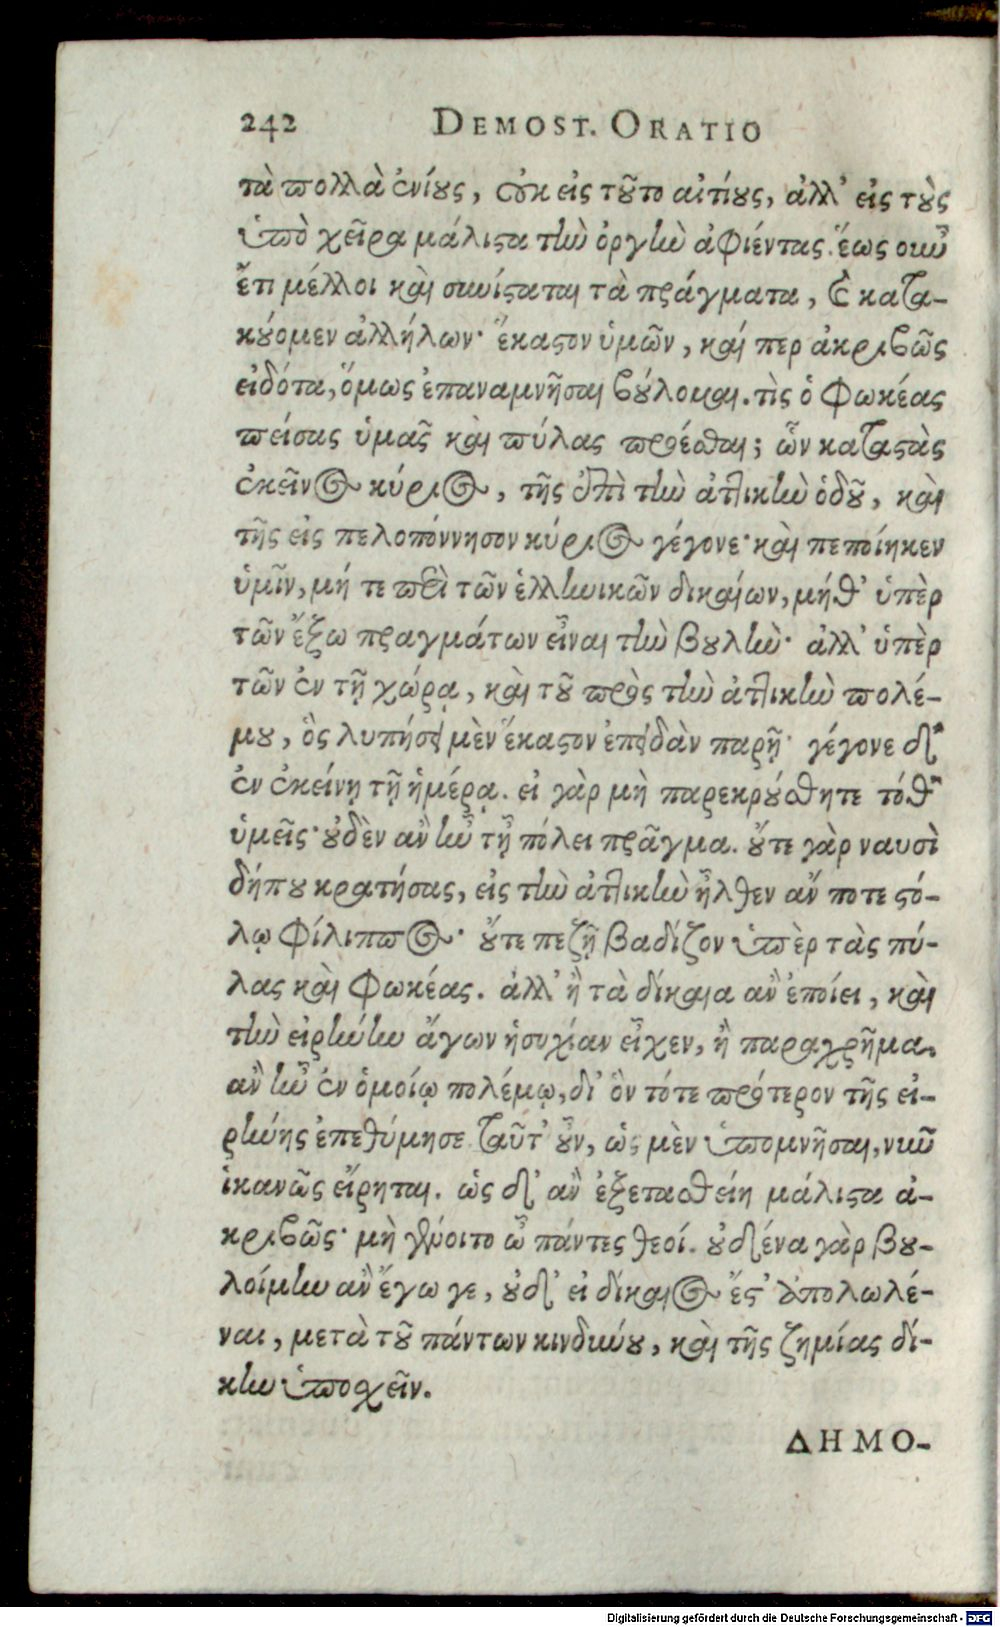 242 DEMOST. ORATIO
τὰ πολλὰ ἐνίους, οὐκ εἰς τοῦτο αἰτίους, ἀλλ' εἰς τοὺς
ὑπὸ χεῖρα μάλιστα τὴν ὀργὴν ἀφιέντας. ἕως οὖν
ἔτι μέλλοι καὶ συνίσταται τὰ πράγματα, καὶ κατα-
κούομεν ἀλλήλων· ἕκαστον ὑμῶν, καί περ ἀκριβῶς
εἰδότα, ὅμως ἐπαναμνῆσαι βούλομαι. τὶς ὁ Φωκέας
πείσας ὑμᾶς καὶ πύλας προέσθαι; ὧν καταστὰς
ἐκεῖνος κύριος, τῆς ἐπὶ τὴν ἀττικὴν ὁδοῦ, καὶ
τῆς εἰς πελοπόννησον κύριος γέγονε· καὶ πεποίηκεν
ὑμῖν, μή τε περὶ τῶν ἑλληνικῶν δικαίων, μήθ' ὑπὲρ
τῶν ἔξω πραγμάτων εἶναι τὴν βουλὴν· ἀλλ' ὑπὲρ
τῶν ἐν τῇ χώρᾳ, καὶ τοῦ πρὸς τὴν ἀττικὴν πολέ-
μου, ὃς λυπήσει μὲν ἕκαστον ἐπειδὰν παρῇ· γέγονε δ'
ἐν ἐκείνῃ τῇ ἡμέρᾳ. εἰ γὰρ μὴ παρεκρούσθητε τόθ'
ὑμεῖς· οὐδὲν ἂν ἦν τῇ πόλει πρᾶγμα. οὔτε γὰρ ναυσὶ
δήπου κρατήσας, εἰς τὴν ἀττικὴν ἦλθεν ἄν ποτε στό-
λῳ Φίλιππος· οὔτε πεζῇ βαδίζον ὑπὲρ τὰς πύ-
λας καὶ Φωκέας. ἀλλ' ἢ τὰ δίκαια ἂν ἐποίει, καὶ
τὴν εἰρήνην ἄγων ἡσυχίαν εἶχεν, ἢ παραχρῆμα
ἂν ἦν ἐν ὁμοίῳ πολέμῳ, δι' ὃν τότε πρότερον τῆς εἰ-
ρήνης ἐπεθύμησε ταῦτ' οὖν, ὡς μὲν ὑπομνῆσαι, νῦν
ἱκανῶς εἴρηται. ὡς δ' ἂν ἐξετασθείη μάλιστα ἀ-
κριβῶς· μὴ γένοιτο ὦ πάντες θεοί. οὐδένα γὰρ βου-
λοίμην ἂν ἔγωγε, οὐδ' εἰ δίκαιος ἔστ' ἀπολωλέ-
ναι, μετὰ τοῦ πάντων κινδύνου, καὶ τῆς ζημίας δί-
κην ὑποσχεῖν.
ΔΗΜΟ-
Digitalisierung gefördert durch die Deutsche Forschungsgemeinschaft - DFG